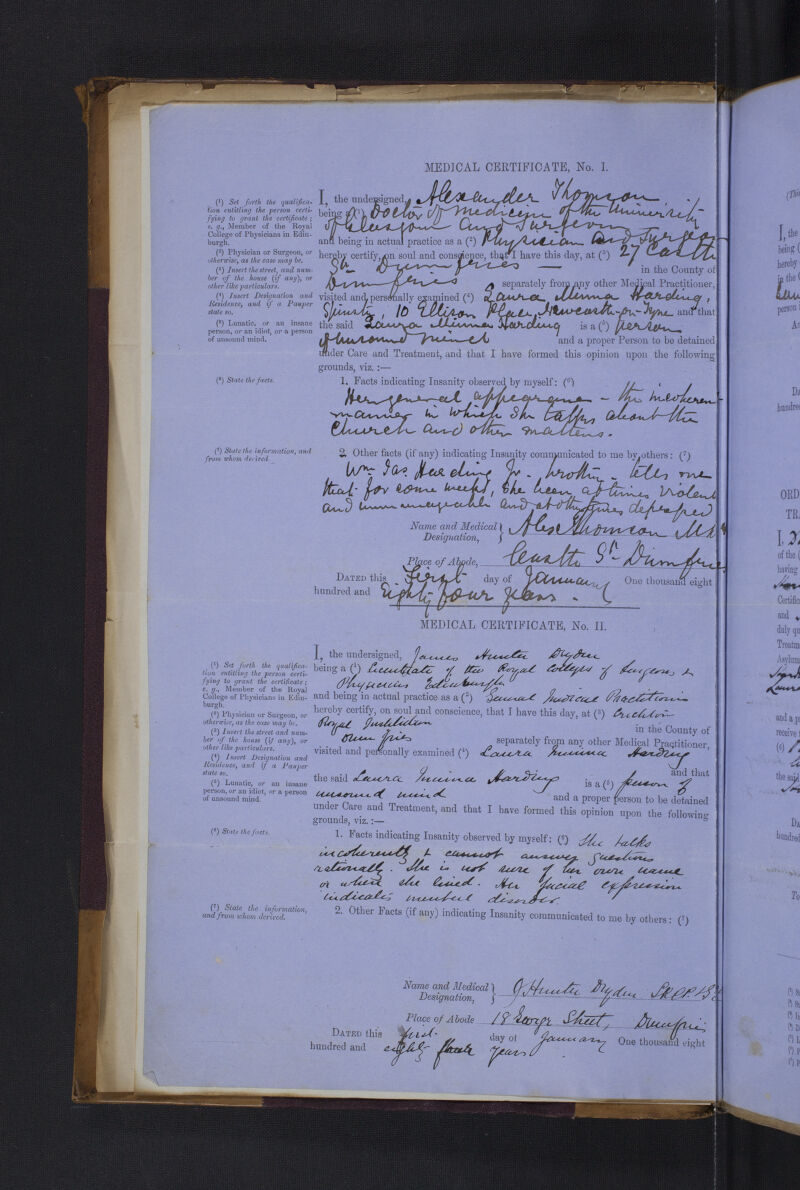 MEDICAL CERTIFICATE, No. I.
(¹) Set forth the qualifica-
tion entitling the person certi-
fying to grant the certificate;
e. g., Member of the Royal
College of Physicians in Edin-
burgh.
(²) Physician or Surgeon, or
otherwise, as the case may be.
(³) Insert the street, and num-
ber of the house (if any), or
other like particulars.
(⁴) Insert Designation and
Residence, and if a Pauper
state so.
(⁵) Lunatic, or an insane
person, or an idiot, or a person
of unsound mind.
I, the undersigned, Alexander Thomson
being a (¹) Doctor of Medicine of the University
of Glasgow and Surgeon
and being in actual practice as a (²) Physician and Surgeon
hereby certify, on soul and conscience, that I have this day, at (³) 27 Castle
St Dumfries — in the County of
Dumfries separately from any other Medical Practitioner,
visited and personally examined (⁴) Laura Minna Harding,
Spinster, 10 Ellison Place, Newcastle-on-Tyne and that
the said Laura Minna Harding is a (⁵) person
of unsound mind and a proper Person to be detained
under Care and Treatment, and that I have formed this opinion upon the following
grounds, viz. :—
(⁶) State the facts.
1. Facts indicating Insanity observed by myself: (⁶)
Her general appearance – the incoherent
manner in which she talks about the
Church and other matters.
(⁷) State the information, and
from whom derived
2. Other facts (if any) indicating Insanity communicated to me by others: (⁷)
Wm Jas. Harding Jr. brother tells me
that for some weeks, she been at times violent
and unmanageable and at other times depressed
Name and Medical Designation, Alex Thomson MD
Place of Abode, Castle St Dumfries
DATED this First day of January One thousand eight
hundred and Eighty four years.
MEDICAL CERTIFICATE, No. II.
(¹) Set forth the qualifica-
tion entitling the person certi-
fying to grant the certificate;
e. g., Member of the Royal
College of Physicians in Edin-
burgh.
(²) Physician or Surgeon, or
otherwise, as the case may be.
(³) Insert the street and num-
ber of the house (if any), or
other like particulars.
(⁴) Insert Designation and
Residence, and if a Pauper
state so.
(⁵) Lunatic, or an insane
person, or an idiot, or a person
of unsound mind
I, the undersigned, James Hunter Dryden
being a (¹) Licentiate of the Royal Colleges of Surgeons &
Physicians Edinburgh
and being in actual practice as a (²) General Medical Practitioner
hereby certify, on soul and conscience, that I have this day, at (³) Crichton
Royal Institution in the County of
Dumfries separately from any other Medical Practitioner,
visited and personally examined (⁴) Laura Minna Harding
and that
the said Laura Minna Harding is a (⁵) person of
unsound mind and a proper person to be detained
under Care and Treatment, and that I have formed this opinion upon the following
grounds, viz. :—
(⁶) State the facts.
1. Facts indicating Insanity observed by myself: (⁶) She talks
incoherently & cannot answer questions
rationally. She is not sure of her own name
or where she lived. Her facial expression
indicates mental disorder.
(⁷) State the information,
and from whom derived.
2. Other Facts (if any) indicating Insanity communicated to me by others: (⁷)
Name and Medical Designation, J Hunter Dryden
Place of Abode 18 George Street, Dumfries
DATED this first day of January One thousand eight
hundred and eighty four years